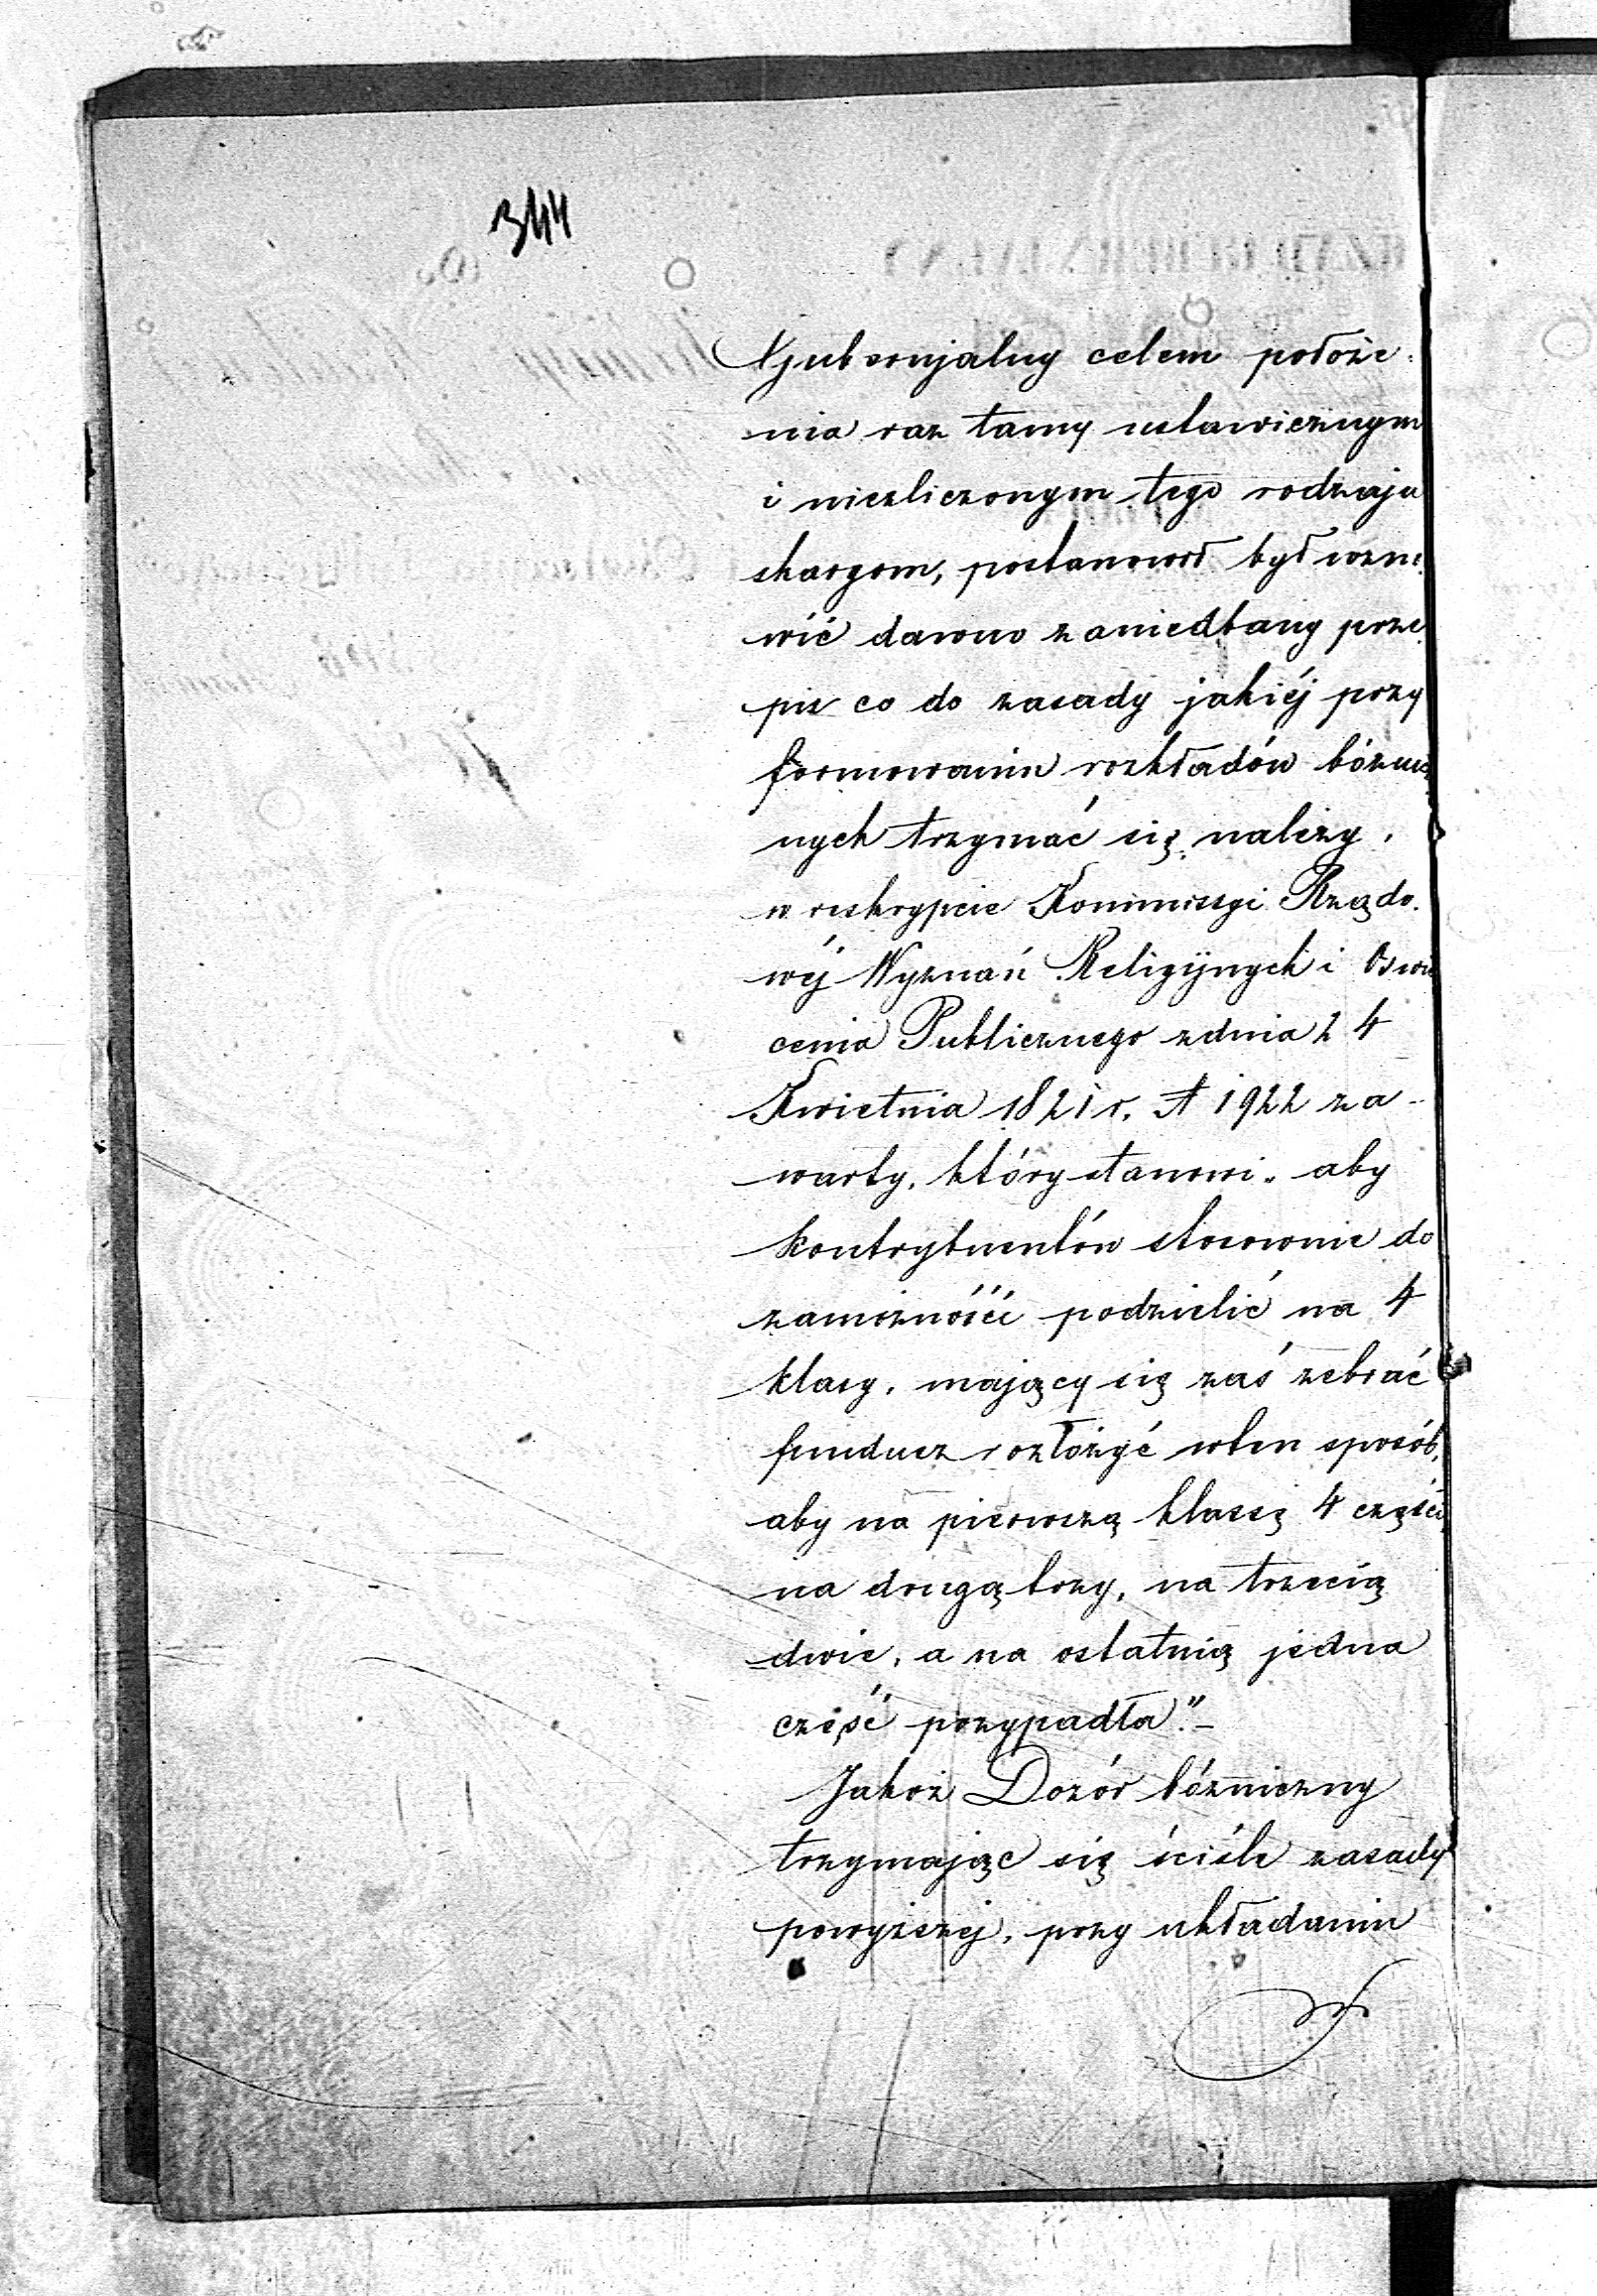 344
Gubernjalny celem położe-
nia raz tamy ustawicznym
i niezliczonym tego rodzaju
skargom, postanowił był wzno-
wić dawno zaniedbany prze-
pis co do zasady jakiéj przy
formowaniu rozkładów bóżni
nych trzymać się należy,
w reskrypcie Kommissyi Rządo-
wéj Wyznań Religijnych i Oswie
cenia Publicznego z dnia 24
Kwietnia 1821 r. N 1922 za-
warty, który stanowi „ aby
kontrybuentów stosownie do
zamożności podzielić na 4
klasy, mający się zaś zebrać
fundusz rozłożyć w ten sposób,
aby na pierwszą klassę 4 części,
na drugą trzy, na trzecią
dwie, a na ostatnią jedna
część przypadła."–
Jakoż Dozór bóżniczny
trzymając się ściśle zasady
powyższej, przy układaniu